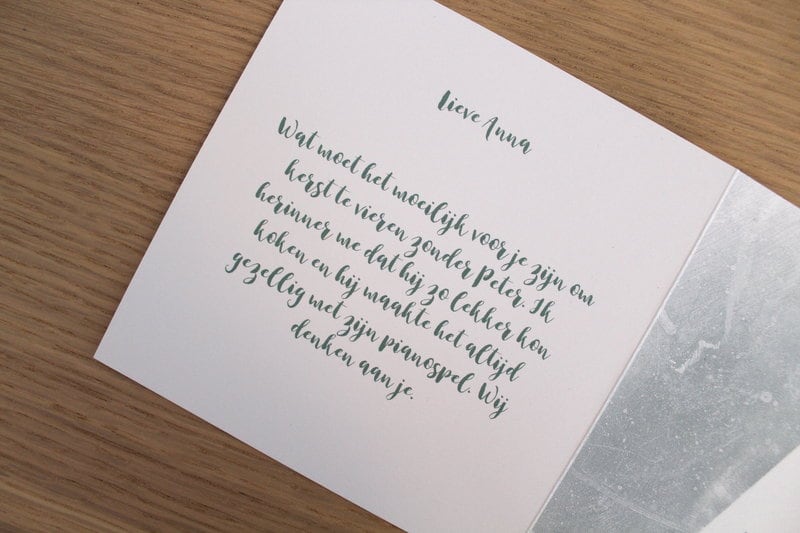 Lieve Anna
Wat moet het moeilijk voor je zijn om
kerst te vieren zonder Peter. Ik
herinner me dat hij zo lekker kon
koken en hij maakte het altijd
gezellig met zijn pianospel. Wij
denken aan je.